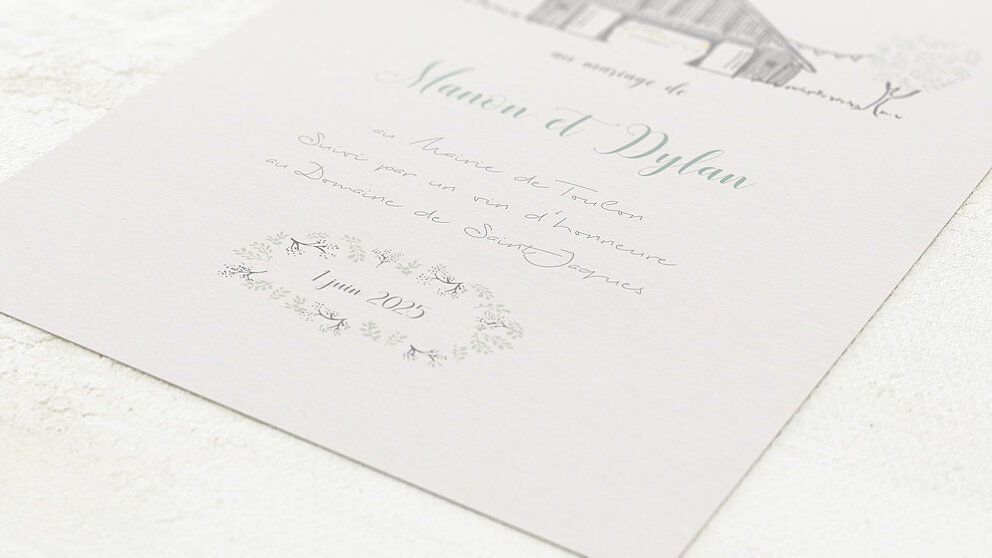 au mariage de
Manon et Dylan
au Mairie de Toulon
Suivi par un vin d'honneure
au Domaine de Saint-Jacques
1 juin 2025